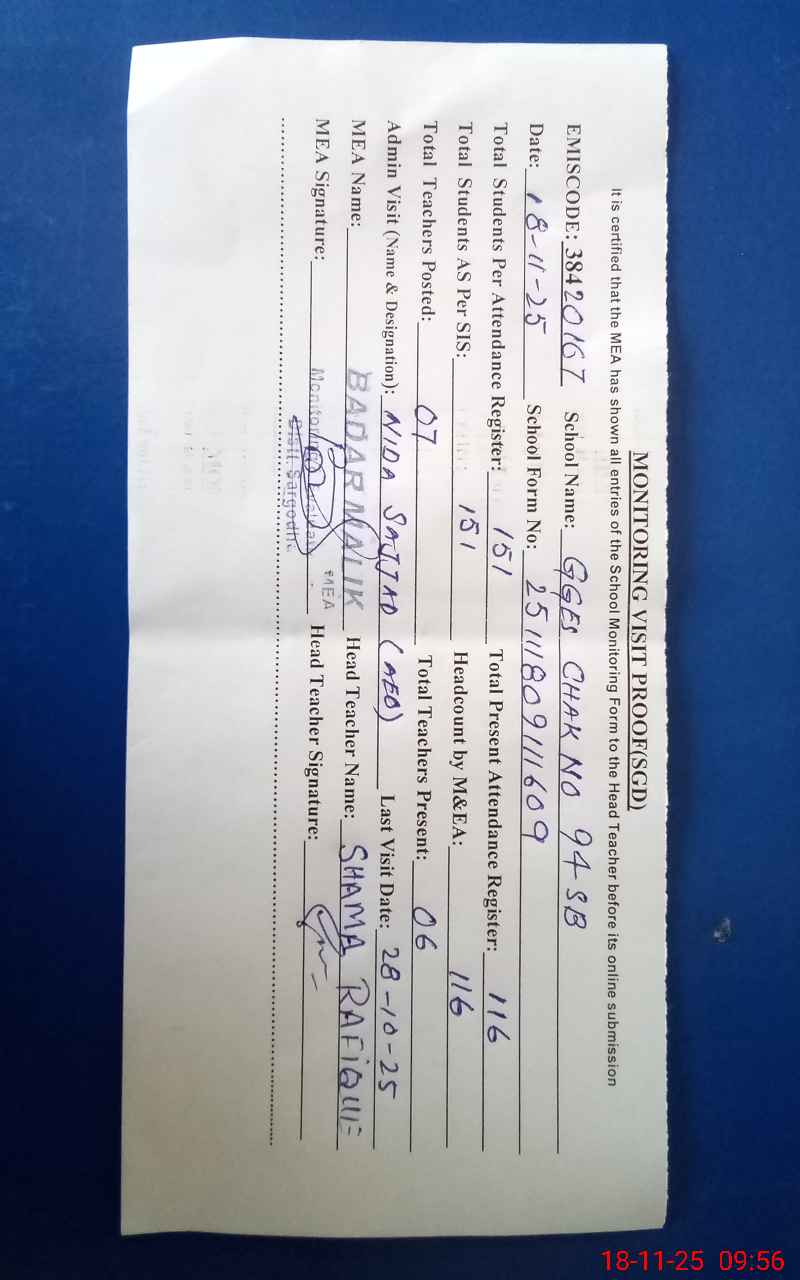 MONITORING VISIT PROOF(SGD)
It is certified that the MEA has shown all entries of the School Monitoring Form to the Head Teacher before its online submission
EMISCODE: 38420167 School Name: GGES CHAK NO 94 SB
Date: 18-11-25 School Form No: 25111809111609
Total Students Per Attendance Register: 151 Total Present Attendance Register: 116
Total Students AS Per SIS: 151 Headcount by M&EA: 116
Total Teachers Posted: 07 Total Teachers Present: 06
Admin Visit (Name & Designation): NIDA SAJJAD (AEO) Last Visit Date: 28-10-25
MEA Name: BADAR MALIK Head Teacher Name: SHAMA RAFIQUE
MEA Signature: MEA Head Teacher Signature:
Distt. Sargodha
18-11-25 09:56